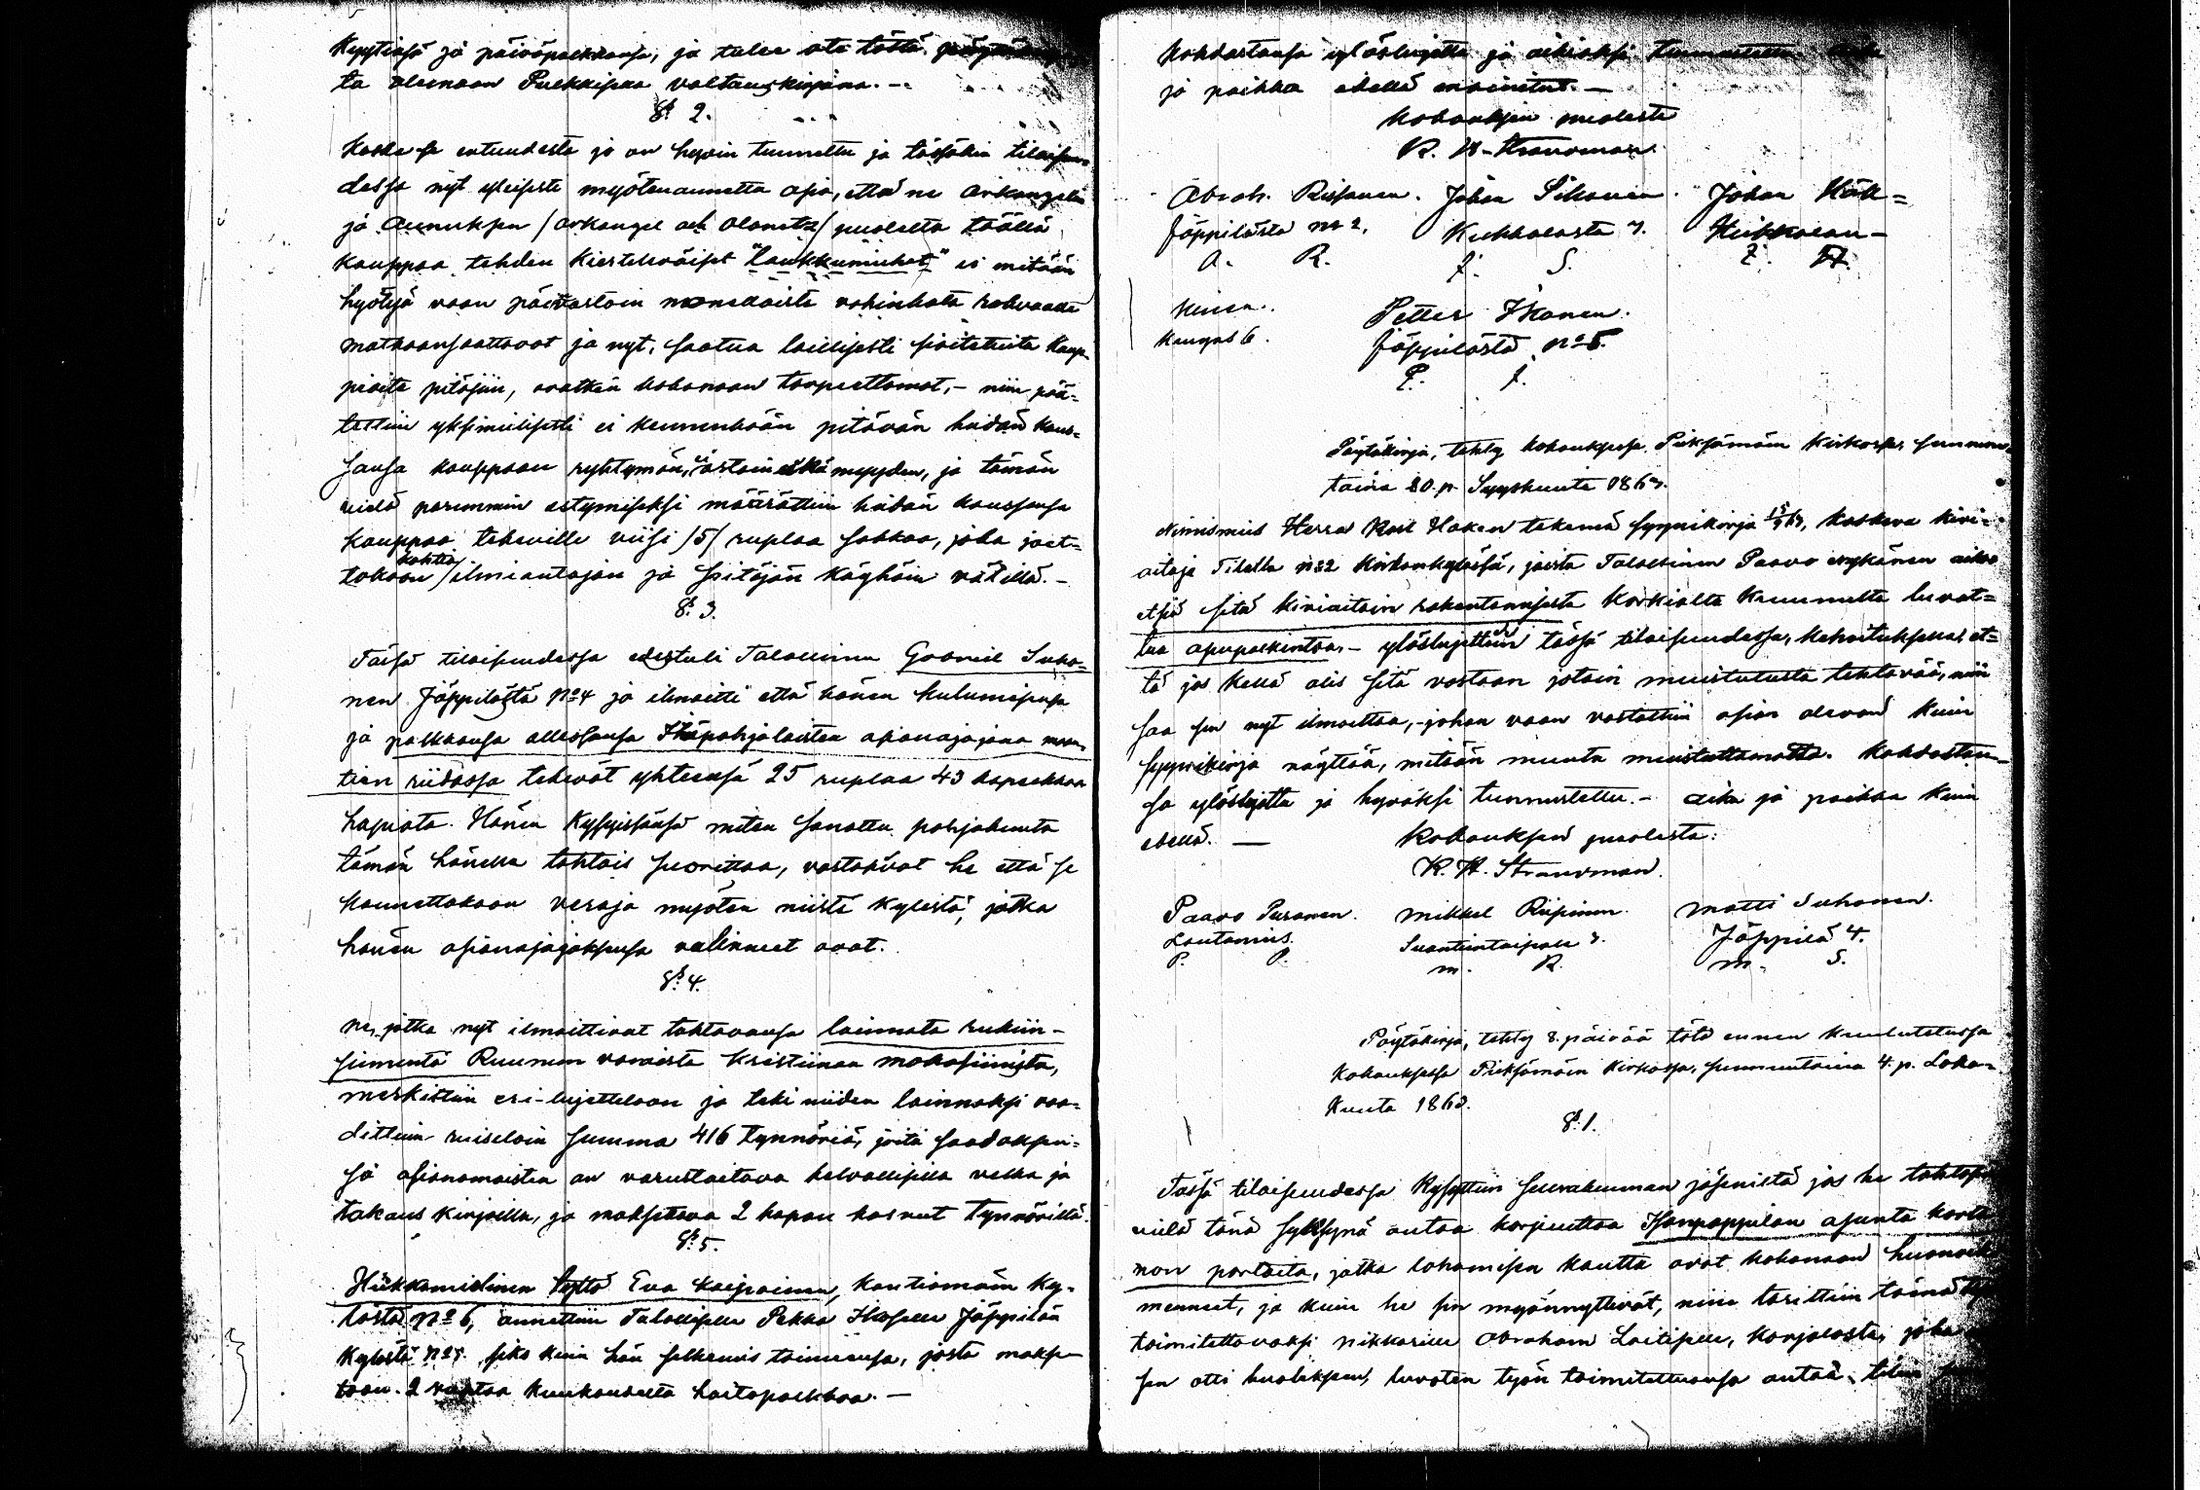 Kyytinsä ja päiväpalkkansa, ja tulee ote tästä
ta olemaan Pulkkisen valtauskirjana. —
§ 2.
Koska se entuudesta jo on hyvin tunnettu ja tässäkin tilaisuu-
dessa nyt yleisesti myötenannettu asia, että ne Arkangelin
ja Aunuksen / Arkangel och Olonetz / puolelta täällä
kauppaa tehden kiertelevaiset "laukkumiehet" ei mitään
hyötyä vaan päinvastoin monellaista vahinkota rahvaalle
matkaansaattavat ja nyt, saatua laillisesti säitetuita Kaup-
piaita pitäjiin, ovatkin kokonaan tarpeettomat, — niin pää-
tettiin yksimielisesti ei kennenkään pitävän heidän kans-
sansa kauppaan ryhtymän, ei ostain eikä myyden, ja tämän
vielä paremmin estymiseksi määrättiin heidän kanssansa
kauppaa tekeville viisi /5/ ruplaa sakkoa, joka jaet-
takoon kahtia / ilmiantajan ja pitäjän käyhäin välillä. —
§ 3.
Tässä tilaisuudessa edestuli Talollinen Gabriel Suho-
nen Jäppilästä No 4 ja ilmoitti että hänen kulumisensa
ja palkkansa ollessansa Itäpohjalaisten asianajajana maan-
tien riidassa tekevät yhteensä 25 ruplaa 43 kopeekkaa
hopiata. Hänen kysyissänsä miten sanottu pohjakunta
tämän hänelle tahtois suorittaa, vastasivat he että se
kannettakoon veroja myöten niistä kylistä, jotka
hänen asianajajaksensa valinneet ovat.
§ 4.
Ne, jotka nyt ilmoittivat tahtovansa lainnata rukiin-
siementä Ruunun varoista Kristiinan makasiinista,
merkittiin eri-luetteloon ja teki niiden lainnaksi vaa-
dittuin ruiseloin summa 416 Tynnöriä, joita saadaksen-
sa asianomaisten on varustaitava kelvollisilla velka ja
takaus kirjoilla, ja maksettava 2 kapan kasvut Tynnörillä.
§ 5.
Heikkomielinen tyttö Eva Kaipainen, Kantiomäin ky-
lästä No 6, annettiin Talollisen Pekka Ikoselle Jäppilän
Kylästä No 5. siksi kuin hän selkenis taimensa, josta makse-
taan 2 kuukaudelta hoitopalkkaa. —
Kohdastansa ylösluettu ja oikiaksi tunnustettu; aika
ja paikka edellä mainitut. —
Kokouksen puolesta
K. H. Strandman
Abrah. Riipanen. Johan Sikanen. Johan Häk-
Jäppilästä No 2. Kukkolasta 7. Heikkolan-
A. R. J. S. J. H.
kinen.
Kangas 6. Petter Ikonen.
Jäppilästä No 5.
P. I.
Pöytäkirja, tehty kokouksessa Pieksämäin Kirkossa, sunnun-
taina 20. p. Syyskuuta 1863.
Nimismies Herra Karl Haken tekemä syynikirja 15/9 63, koskeva kivi-
aitoja Tilalla No 2 Kirkonkylässä, joista Talollinen Paavo Nykänen aikoo
etsiä sitä kiviaitain rakentamisesta Korkialta Kruunulta luvat-
tua apupalkintoa. — ylösluettiin tässä tilaisuudessa, kehoituksella et-
tä jos kellä olis sitä vastaan jotain muistutusta tehtävää, niin
saa sen nyt ilmoittaa, — johon vaan vastattiin asian olevan kuin
syynikirja näyttää, mitään muuta muistuttamatta. Kohdastan-
sa ylösluettu ja hyväksi tunnustettu. — Aika ja paikka kuin
edellä. — Kokouksen puolesta:
K. H. Strandman.
Paavo Puranen. Mikkel Riipinen. Matti Suhonen.
Lautamies. Suontientaipale 3. Jäppilä 4.
P. P. M. R. M. S.
Pöytäkirja, tehty 8. päivää tätä ennen kuulutetussa
Kokouksessa Pieksämäin Kirkossa, sunnuntaina 4. p. Loka-
kuuta 1863.
§ 1.
Tässä tilaisuudessa kysyttiin seurakunnan jäsenistä jos he tahtosi
vielä tänä syksynä antaa korjuuttaa Isonpappilan asunta karta-
non portaita, jotka lahomisen kautta ovat kokonaan huonoiksi
menneet, ja kuin he sen myönnyttivät, niin tarittiin tämä
toimitettavaksi nikkarille Abraham Laitisen, Karjalasta, joka
sen otti huoleksensa, luvaten työn toimitettuansa antaa tilin